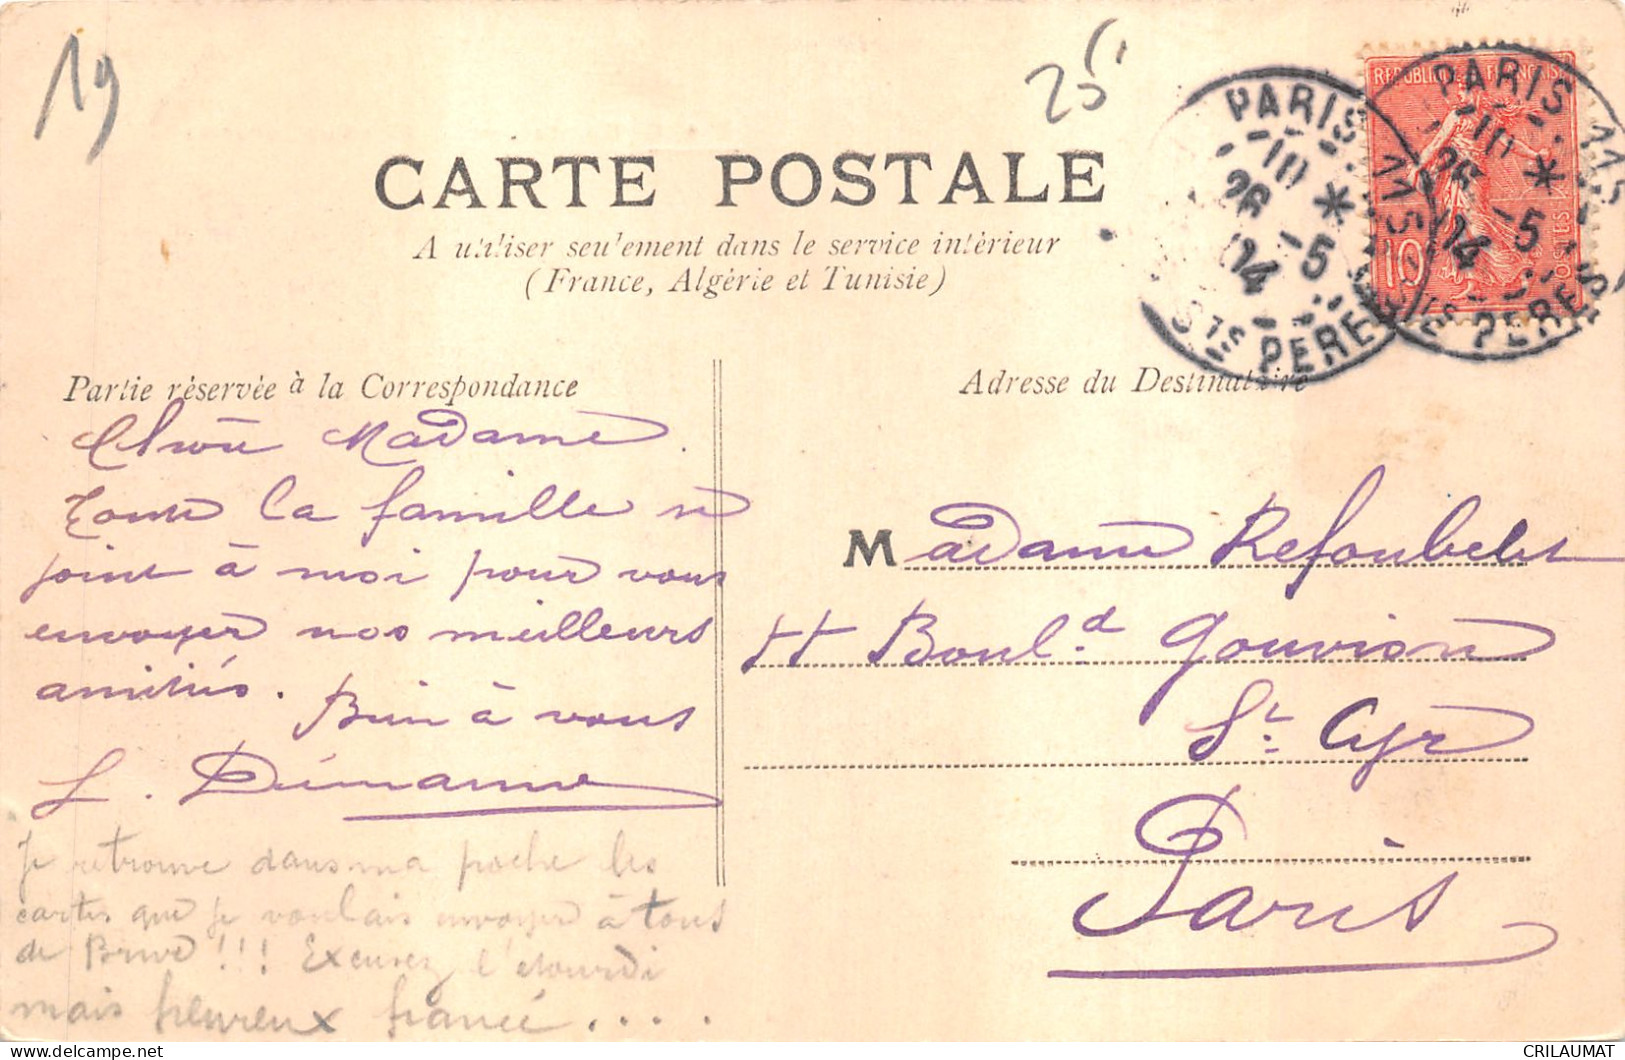 19
25
CARTE POSTALE
A utiliser seulement dans le service intérieur
(France, Algérie et Tunisie)
PARIS 115
10
26 -5
14
Sts PERES
REPUBLIQUE FRANÇAISE
10
POSTES
PARIS 115
10
26 -5
14
Sts PERES
Partie réservée à la Correspondance
Adresse du Destinataire
Chère Madame.
Toute la famille se
joint à moi pour vous
envoyer nos meilleurs
amitiés. Bien à vous
L.
Je retrouve dans ma poche les
cartes que je voulais envoyer à tous
de Brive !!! Excusez l'étourdi
mais heureux fiancé....
Madame
Boul.d Gouvion
St. Cyr
Paris
CRILAUMAT